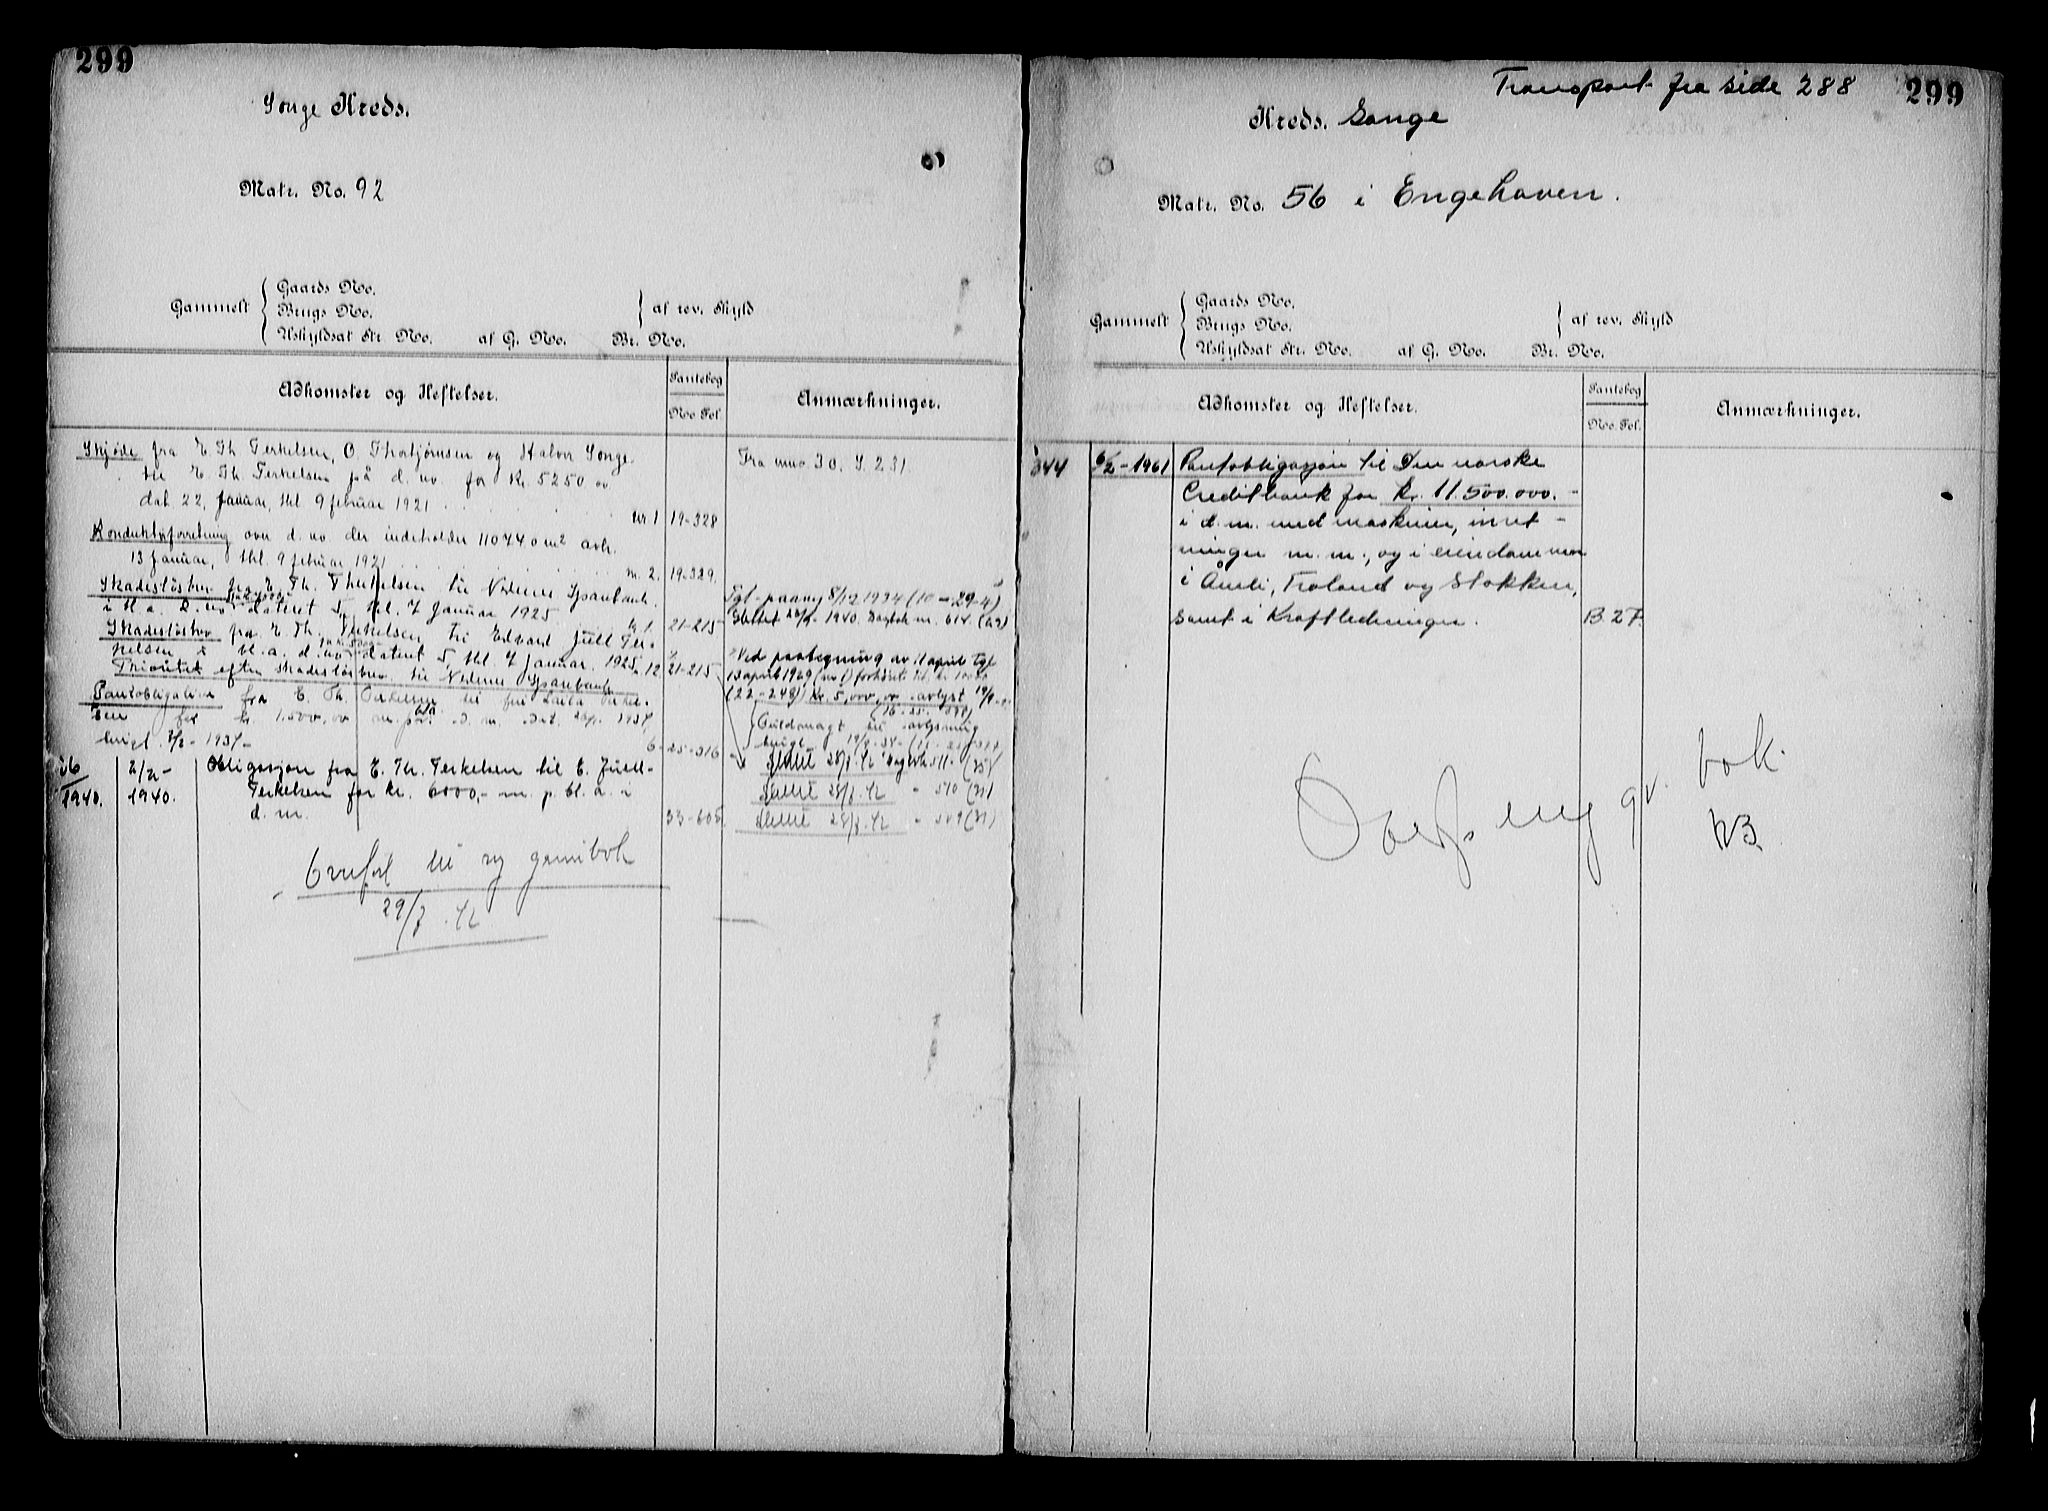 299
Songe Kreds.
Matr. No. 92
Gaards No.
Gammelt Brugs No. af rev. Skyld
Uskyldsat Str. No. af G. No. Br. No.
Adkomster og Heftelser.
Pantebog
No. Fol.
Anmærkninger.
Skjøde fra E. Th. Terkelsen, O. Thorbjørnsen og Halvor Songe
til E. Th. Terkelsen på d. no. for Kr. 5250
dat 22. Januar, thl. 9 februar 1921 nr 1 19-328
Fra mno 30. S. 231.
Konduktørforretning over d. no der indeholder 11074.0 m² avh.
13 Januar, thl. 9 februar 1921 nr. 2. 19-329.
Skadesløsbrev fra E. Th. Therkelsen til Nedenes Sparebank
i bl. a. d. no dateret 5, thl. 7 Januar 1925 21-215
Tgl. paany 8/12 1934 (10-29-4)
Slettet 1940. Dagbok nr. 614.
Skadesløsbrev fra E. Th. Terkelsen til Edvard Juell Ter-
kelsen i bl. a. d. no dateret 5, thl. 7 Januar 1925 12 21-215
Prioritet efter skadesløsbrev til Nedenes Sparebank
Ved paategning av 11 april Tgl
13 april 1929
(22-248) Kr. 5,000,00 avlyst
Pantobligation fra E. Th. Terkelsen til Terkel-
sen for kr. 1.500,00 m. p. bl. a. d. m. Dat. 1934,
tingl. 1934 6-25-316
avlysning
26/1940. 2/2-1940. Obligasjon fra E. Th. Terkelsen til E. Juell-
Terkelsen for kr. 6000,- m. p. bl. a. i
d. m. 33-605.
Slettet 28/8.42 Dagbok 511
Slettet 28/8.42 " 510 (31)
Slettet 28/8.42 " 509 (31)
til ny grunnbok
29/8.42
Transport fra side 288
299
Kreds. Songe
Matr. No. 56 i Engehaven.
Gaards No.
Gammelt Brugs No. af rev. Skyld
Uskyldsat Str. No. af G. No. Br. No.
Adkomster og Heftelser.
Pantebog
No. Fol.
Anmærkninger.
344 6/2-1961 Pantobligasjon til Den norske
Creditbank for kr. 11.500.000.-
i d. m. med maskiner, inret-
ninger m. m., og i eiendommer
i Åmli, Froland og Stokken,
samt i Kraftledninger. B 27.
bok.
NB.